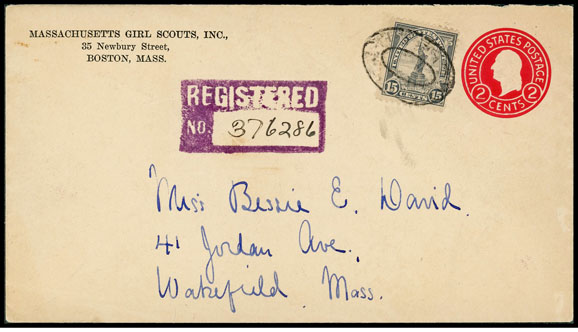 MASSACHUSETTS GIRL SCOUTS, INC.,
35 Newbury Street,
BOSTON, MASS.
15 CENTS 15
UNITED STATES POSTAGE
2 CENTS 2
REGISTERED
NO. 376286
Miss Bessie E. David.
41 Jordan Ave.
Wakefield Mass.